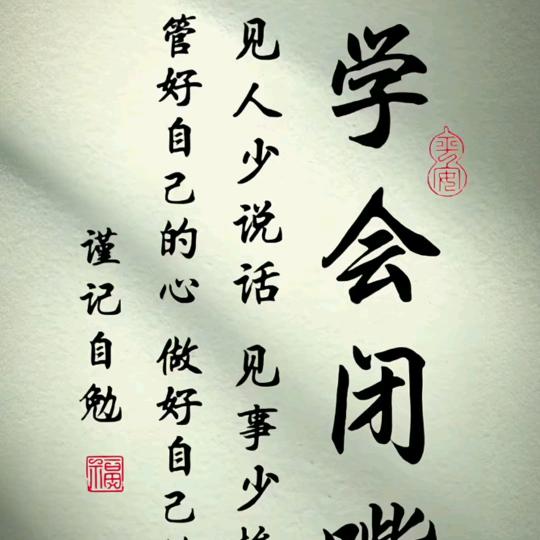 学会闭
平安
见人少说话 见事少
管好自己的心 做好自己
谨记自勉
福